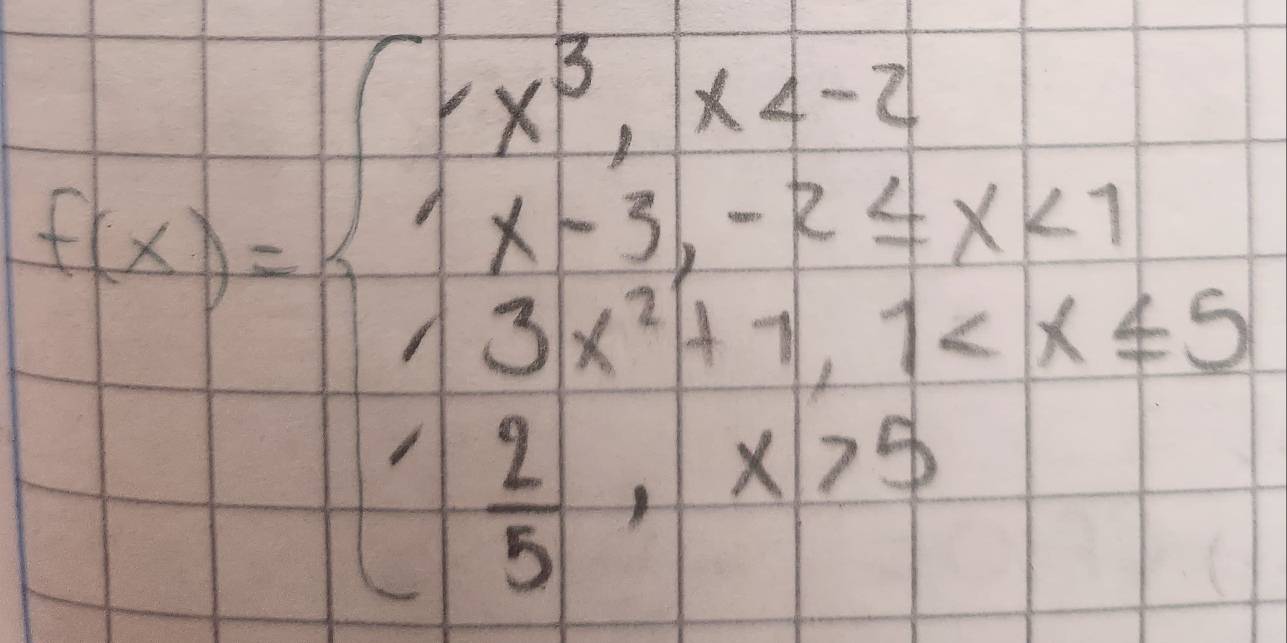 x³, x < -2
x - 3, -2 ≤ x < 1
f(x) =
3x² + 1, 1 < x ≤ 5
2/5, x > 5